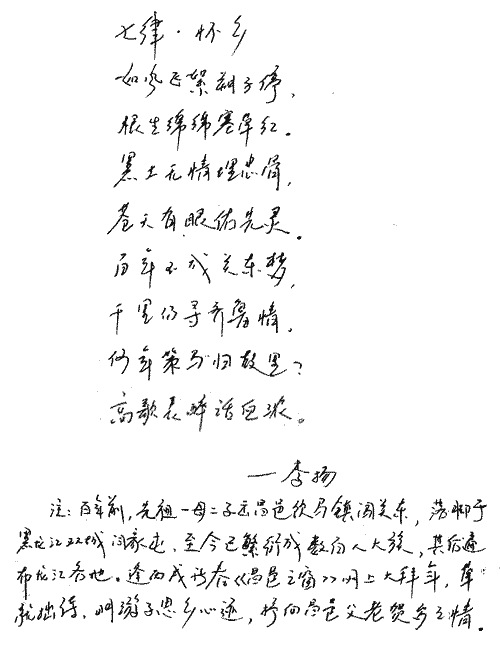 七律·怀乡
如风飞絮游子停,
根生绵绵塞草红。
黑土无情埋忠骨,
苍天有眼佑先灵。
百年不成关东梦,
千里仍寻齐鲁情。
何年策马归故里?
高歌长醉话
—李扬
注:百年前,先祖一母二子去昌邑饮马镇闯关东,落脚于
黑龙江双城闫家屯,至今已繁衍成数百人大族,其后遍
布龙江各地。逢丙戌新春《昌邑之窗》网上大拜年,草
就拙诗,明游子思乡心迹,抒向昌邑父老贺岁之情。